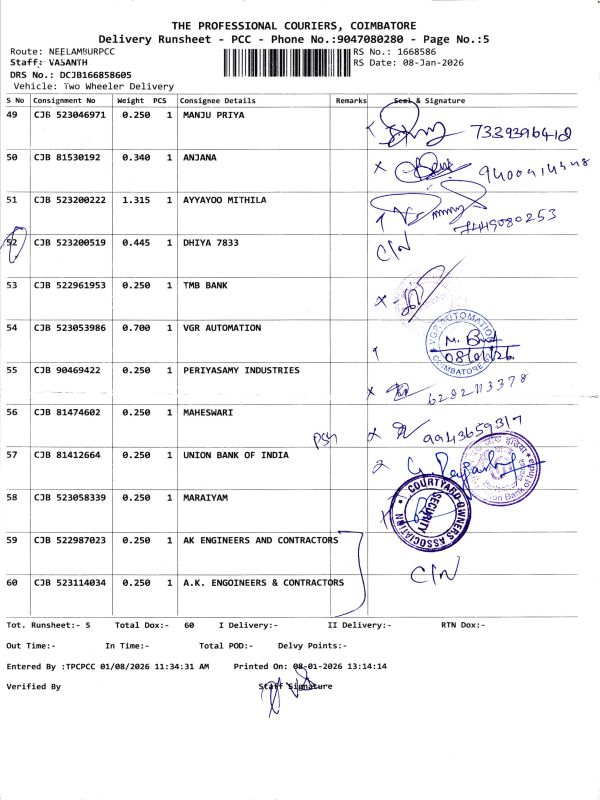 THE PROFESSIONAL COURIERS, COIMBATORE
Delivery Runsheet - PCC - Phone No.:9047080280 - Page No.:5
Route: NEELAMBURPCC
RS No.: 1668586
Staff: VASANTH
RS Date: 08-Jan-2026
DRS No.: DCJB166858605
Vehicle: Two Wheeler Delivery
S No Consignment No Weight PCS Consignee Details Remarks Seal & Signature
49 CJB 523046971 0.250 1 MANJU PRIYA 7339396412
50 CJB 81530192 0.340 1 ANJANA
51 CJB 523200222 1.315 1 AYYAYOO MITHILA 7449080253
52 CJB 523200519 0.445 1 DHIYA 7833 C/N
53 CJB 522961953 0.250 1 TMB BANK
54 CJB 523053986 0.700 1 VGR AUTOMATION VGR AUTOMATION COIMBATORE 08/01/26
55 CJB 90469422 0.250 1 PERIYASAMY INDUSTRIES 6282113378
56 CJB 81474602 0.250 1 MAHESWARI 9943659317
57 CJB 81412664 0.250 1 UNION BANK OF INDIA Union Bank of India
58 CJB 523058339 0.250 1 MARAIYAM COURTYARD-OWNERS ASSOCIATION SECURITY
59 CJB 522987023 0.250 1 AK ENGINEERS AND CONTRACTORS
60 CJB 523114034 0.250 1 A.K. ENGOINEERS & CONTRACTORS C/N
Tot. Runsheet:- 5 Total Dox:- 60 I Delivery:- II Delivery:- RTN Dox:-
Out Time:- In Time:- Total POD:- Delvy Points:-
Entered By :TPCPCC 01/08/2026 11:34:31 AM Printed On: 08-01-2026 13:14:14
Verified By Staff Signature